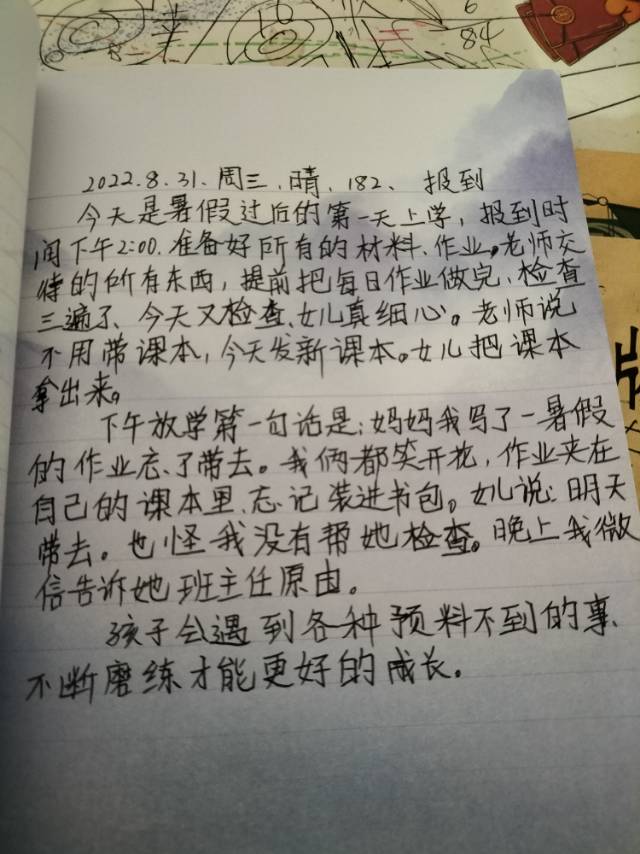 6
84
2022.8.31.周三.晴.182、 报到
今天是暑假过后的第一天上学，报到时
间下午2:00.准备好所有的材料、作业。老师交
待的所有东西，提前把每日作业做完、检查
三遍了、今天又检查、女儿真细心。老师说
不用带课本，今天发新课本。女儿把课本
拿出来。
下午放学第一句话是：妈妈我写了一暑假
的作业忘了带去。我俩都笑开花，作业夹在
自己的课本里、忘记装进书包。女儿说：明天
带去。也怪我没有帮她检查。晚上我微
信告诉她班主任原由。
孩子会遇到各种预料不到的事、
不断磨练才能更好的成长。